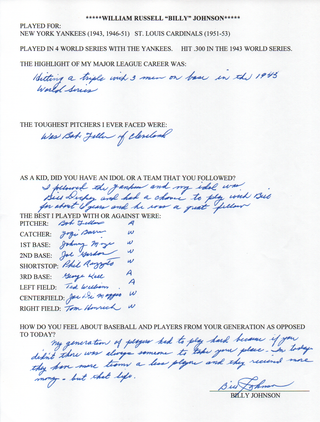 *****WILLIAM RUSSELL "BILLY" JOHNSON*****
PLAYED FOR:
NEW YORK YANKEES (1943, 1946-51) ST. LOUIS CARDINALS (1951-53)
PLAYED IN 4 WORLD SERIES WITH THE YANKEES. HIT .300 IN THE 1943 WORLD SERIES.
THE HIGHLIGHT OF MY MAJOR LEAGUE CAREER WAS:
Hitting a triple with 3 men on base in the 1943
World Series
THE TOUGHEST PITCHERS I EVER FACED WERE:
Was Bob Feller of Cleveland
AS A KID, DID YOU HAVE AN IDOL OR A TEAM THAT YOU FOLLOWED?
I followed the Yankees and my idol was
Bill Dickey and had a chance to play with Bill
for about years and he was a great fellow
THE BEST I PLAYED WITH OR AGAINST WERE:
PITCHER: Bob Feller A
CATCHER: Yogi Berra W
1ST BASE: Johnny Mize W
2ND BASE: Joe Gordon W
SHORTSTOP: Phil Rizzuto W
3RD BASE: George Kell A
LEFT FIELD: Ted Williams A
CENTERFIELD: Joe Di Maggio W
RIGHT FIELD: Tom Henrich W
HOW DO YOU FEEL ABOUT BASEBALL AND PLAYERS FROM YOUR GENERATION AS OPPOSED
TO TODAY?
My generation of players had to play hard because if you
didn't there was always someone to take your place. In today
they have more teams & less players and they received more
money - but that life.
Bill Johnson
BILLY JOHNSON